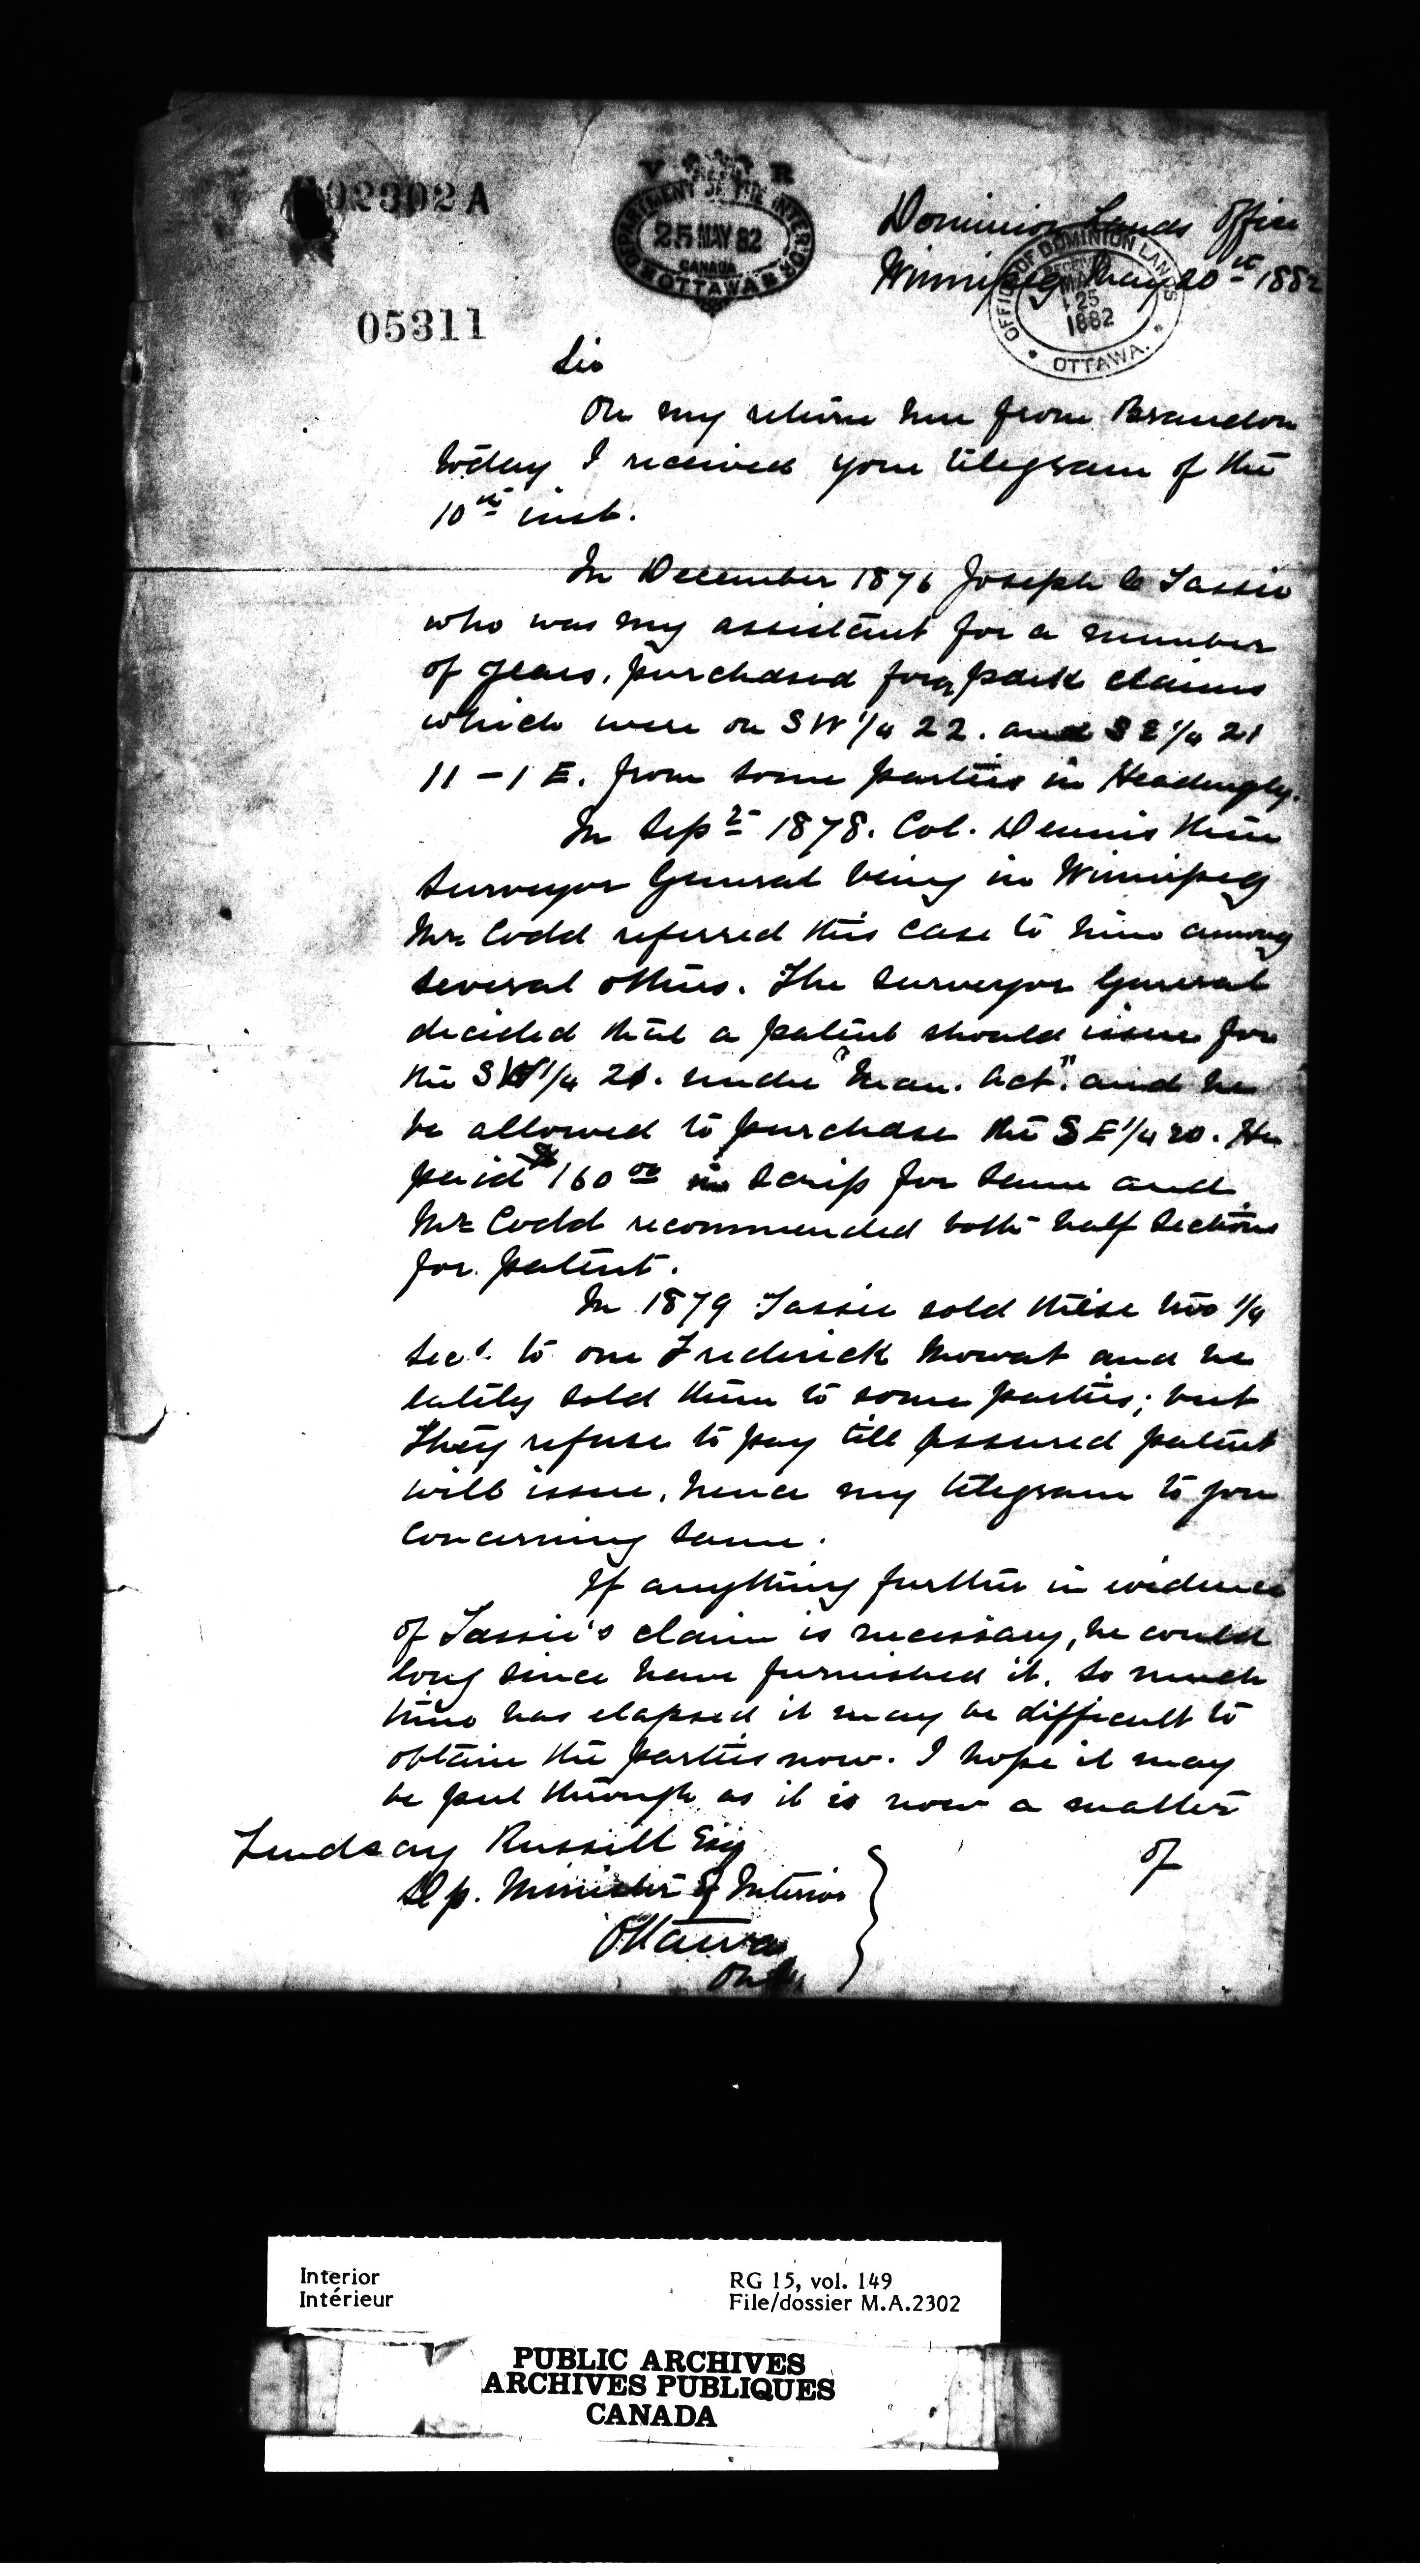 02302 A
V R
DEPARTMENT OF THE INTERIOR
25 MAY 82
CANADA
OTTAWA
Dominion Lands Office
Winnipeg May 20th 1882
OFFICE OF DOMINION LANDS
RECEIVED
MAY
25
1882
OTTAWA.
05311
Sir
On my return here from Brandon
today I received your telegram of the
10th inst.
In December 1876 Joseph C Tassie
who was my assistant for a number
of years, purchased park claims
which were on SW 1/4 22. and SE 1/4 21
11 - 1 E. from some parties in Headingly.
In Sept 1878. Col. Dennis then
Surveyor General being in Winnipeg
Mr Codd referred this case to him among
several others. The Surveyor General
decided that a patent should issue for
the SW 1/4 21. under "Man. Act". and he
be allowed to purchase the SE 1/4 20. He
paid $160 00 in scrip for same and
Mr Codd recommended both half sections
for patent.
In 1879 Tassie sold these two 1/4
Secs. to one Frederick Mowat and he
lately sold them to some parties; but
they refuse to pay till assured patent
will issue, hence my telegram to you
concerning same.
If anything further in evidence
of Tassie's claim is necessary, he could
long since have furnished it. So much
time has elapsed it may be difficult to
obtain the parties now. I hope it may
be put through as it is now a matter
of
Lindsay Russell Esq
Dp. Minister of Interior
Ottawa
Ont
Interior
Intérieur
RG 15, vol. 149
File/dossier M.A.2302
PUBLIC ARCHIVES
ARCHIVES PUBLIQUES
CANADA